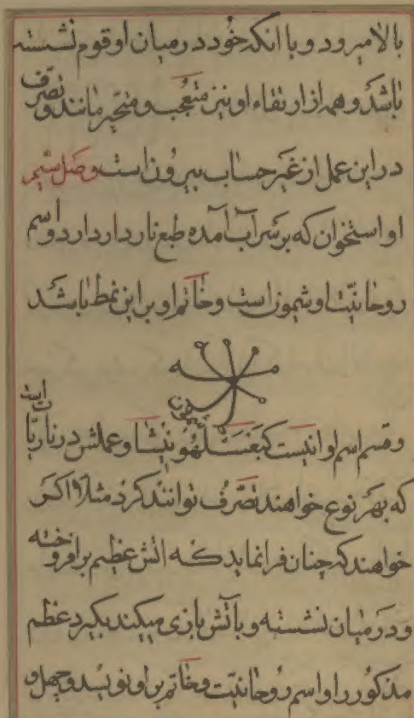 بالا میرود و با انکه خود در میان او قوم نشسته
باشد و همه از ارتقاء او نیز متعجب و متحیر مانند و تصرف
در این عمل از غیر حساب بیرون است وصل سیم
او استخوان که بر سر آب آمده طبع نار دارد و اسم
روحانیت او شیمون است و خاتم او بر این نمط باشد
و قسم اسم او اینست و عملش در ناریات است
که بهر نوع خواهند تصرف توانند کرد مثلا اگر
خواهند که چنان فرا نماید که اتش عظیم بر افروخته
و در میان نشسته و با آتش بازی میکند بگیرد عظم
مذکور را و اسم روحانیت و خاتم بر او نویسد و چهل و